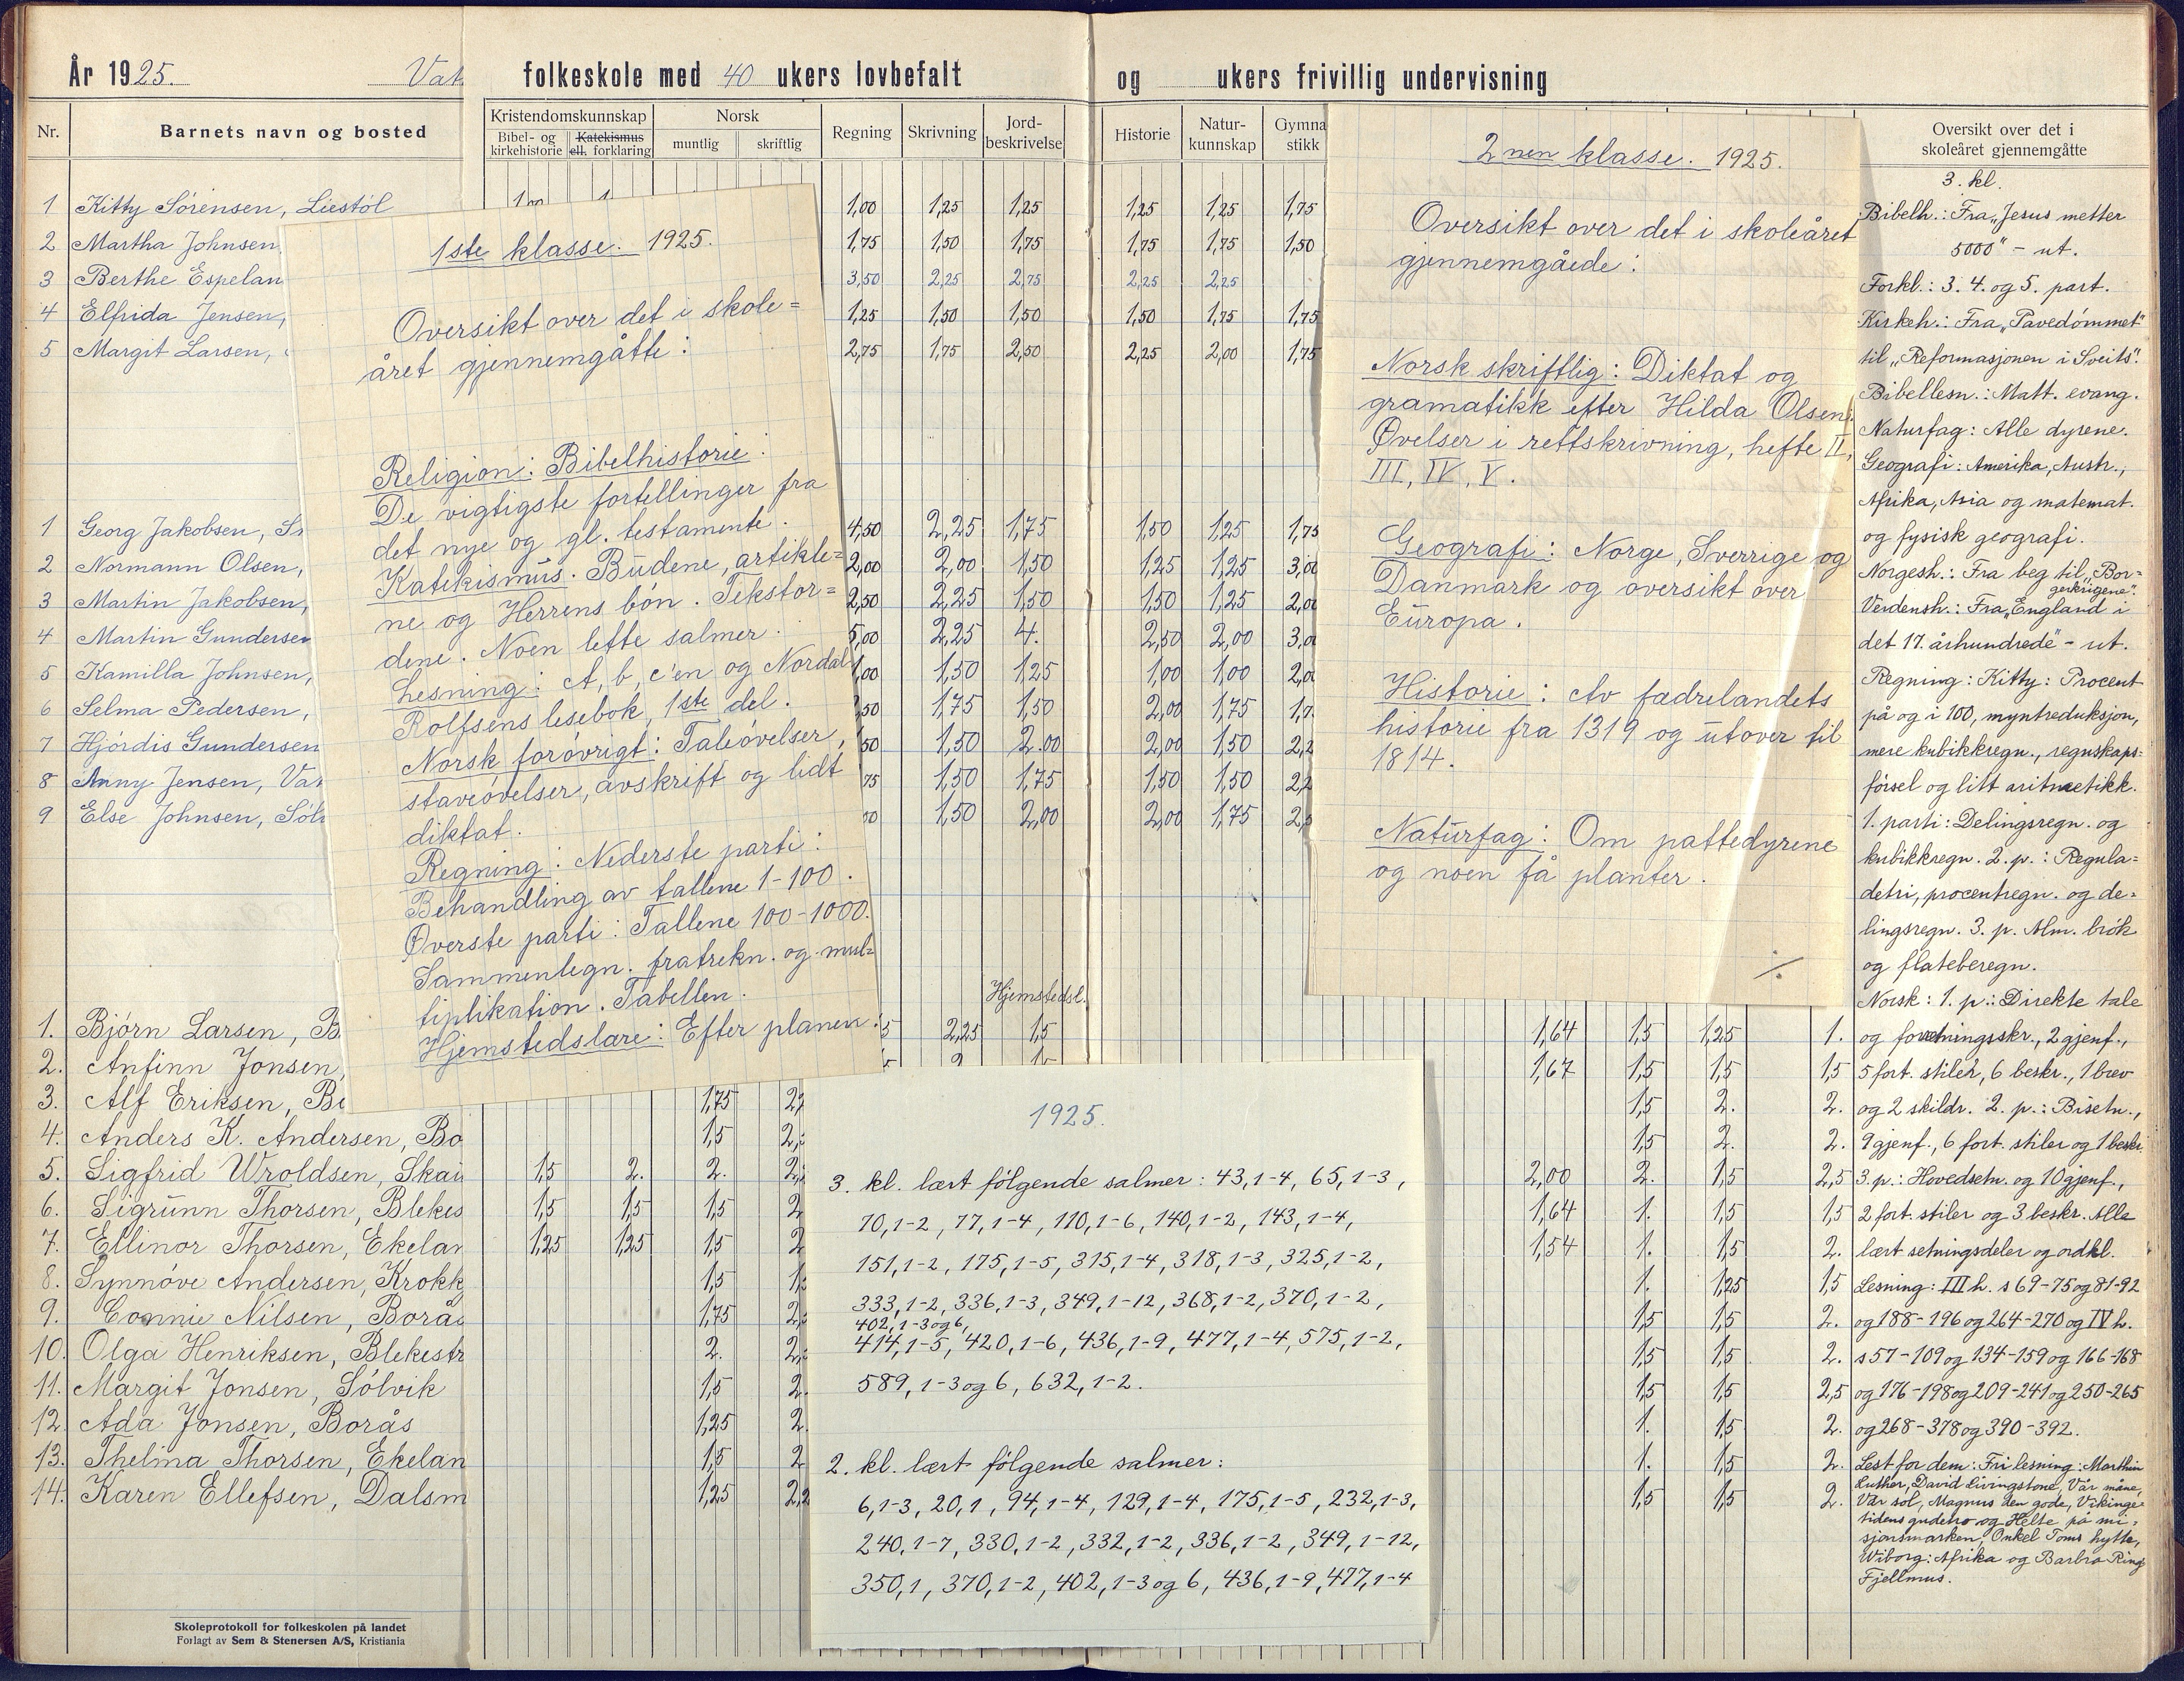 År 1925.
folkeskole med 40 ukers lovbefalt
og ukers frivillig undervisning
Nr.
Barnets navn og bosted
Kristendomskunnskap
Bibel- og kirkehistorie
Katekismus ell. forklaring
Norsk
muntlig
skriftlig
Regning
Skrivning
Jord-beskrivelse
Historie
Natur-kunnskap
Oversikt over det i
skoleåret gjennemgåtte
1 Kitty Sørensen, Liestöl 1,00 1,25 1,25 1,25 1,25 1,75
2 Martha Johnsen, 1,75 1,50 1,75 1,75 1,75 1,50
3 Berthe Espelan 3,50 2,25 2,75 2,25 2,25
4 Elfrida Jensen, 1,25 1,50 1,50 1,50 1,75 1,75
5 Margit Larsen, 2,75 1,75 2,50 2,25 2,00 1,75
1 Georg Jakobsen, 4,50 2,25 1,75 1,50 1,25 1,75
2 Normann Olsen, 2,00 2,00 1,50 1,25 1,25 3,00
3 Martin Jakobsen, 2,50 2,25 1,50 1,50 1,25 2,00
4 Martin Gundersen 5,00 2,25 4. 2,50 2,00 3,00
5 Kamilla Johnsen, 1,00 1,50 1,25 1,00 1,00
6 Selma Pedersen, 1,75 1,50 2,00 1,75
7 Hjördis Gundersen 1,50 2.00 2,00 1,50
8 Anny Jensen, 1,50 1,75 1,50 1,50
9 Else Johnsen, 1,50 2,00 2,00 1,75
Hjemstedsl.
1. Björn Larsen, 2,25 1,5 1,64 1,5 1,25 1.
2. Anfinn Jonsen, 1,67 1,5 1,5 1,5
3. Alf Eriksen, 1,75 1,5 2. 2.
4. Anders K. Andersen, Bo 1,5 1,5 2. 2.
5. Sigfrid Wroldsen, Skai 1,5 2. 2. 2,00 2. 1,5 2,5
6. Sigrunn Thorsen, Blekes 1,5 1,5 1,5 1,64 1. 1,5 1,5
7. Ellinor Thorsen, Ekelan 1,25 1,25 1,5 1,54 1. 1,5 2.
8. Synnöve Andersen, Krokk 1,5 1. 1,25 1,5
9. Connie Nilsen, Borås 1,75 1,5 1,5 2.
10. Olga Henriksen, Blekestr 2. 1,5 1,5 2.
11. Margit Jonsen, Sólvik 1,5 1,5 1,5 2,5
12. Ada Jonsen, Borås 1,25 1. 1,5 2.
13. Thelma Thorsen, Ekelan 1,5 1. 1,5 2.
14. Karen Ellefsen, Dalsm 1,25 1,5 1,5 2.
Skoleprotokoll for folkeskolen på landet
Forlagt av Sem & Stenersen A/S, Kristiania
1ste klasse. 1925.
Oversikt over det i skole=
året gjennemgåtte:
Religion: Bibelhistorie:
De vigtigste fortellinger fra
det nye og gl. testamente.
Katekismus. Budene, artikle=
ne og Herrens bön. Tekstor=
dene. Noen lette salmer.
Lesning: A, b, c'en og Nordal
Rolfsens lesebok, 1ste del.
Norsk foróvrigt: Taleóvelser,
staveóvelser, avskrift og lidt
diktat.
Regning: Nederste parti:
Behandling av tallene 1-100.
Øverste parti: Tallene 100-1000.
Sammenlegn. fratrekn. og mul=
tiplikation. Tabellen.
Hjemstedslære: Efter planen.
2nen klasse. 1925.
Oversikt over det i skoleåret
gjennemgåede:
Norsk skriftlig: Diktat og
gramatikk efter Hilda Olsen:
Øvelser i rettskrivning, hefte II,
III, IV, V.
Geografi: Norge, Sverrige og
Danmark og oversikt over
Europa.
Historie: Av fædrelandets
historie fra 1319 og utover til
1814.
Naturfag: Om pattedyrene
og noen få planter.
1925.
3. kl. lært fölgende salmer: 43,1-4, 65,1-3,
70,1-2, 77,1-4, 110,1-6, 140,1-2, 143,1-4,
151,1-2, 175,1-5, 315,1-4, 318,1-3, 325,1-2,
333,1-2, 336,1-3, 349,1-12, 368,1-2, 370,1-2,
402,1-3 og 6,
414,1-5, 420,1-6, 436,1-9, 477,1-4, 575,1-2,
589, 1-3 og 6, 632, 1-2.
2. kl. lært fölgende salmer:
6,1-3, 20,1, 94,1-4, 129,1-4, 175,1-5, 232,1-3,
240,1-7, 330,1-2, 332,1-2, 336,1-2, 349,1-12,
350,1, 370,1-2, 402,1-3 og 6, 436,1-9, 477,1-4
3. kl.
Bibelh.: Fra „Jesus metter
5000" - ut.
Forkl.: 3. 4. og 5. part.
Kirkeh.: Fra „Pavedómmet"
til „Reformasjonen i Sveits".
Bibellesn.: Matt. evang.
Naturfag: Alle dyrene.
Geografi: Amerika, Austr.,
Afrika, Asia og matemat.
og fysisk geografi.
Norgesh.: Fra beg til „Bor=
gerkrigene".
Verdensh.: Fra „England i
det 17. århundrede" - ut.
Regning: Kitty: Procent
på og i 100, myntreduksjon,
mere kubikkregn., regnskaps=
försel og litt aritmetikk.
1. parti: Delingsregn. og
kubikkregn. 2. p.: Regula=
detri, procentregn. og de=
lingsregn. 3. p. Alm. brök
og flateberegn.
Norsk: 1. p.: Direkte tale
og forretningsskr., 2 gjenf.,
5 fort. stiler, 6 beskr., 1 brev
og 2 skildr. 2. p.: Bisetn.,
9 gjenf., 6 fort. stiler og 1 beskr.
3. p.: Hovedsetn. og 10 gjenf.,
2 fort. stiler og 3 beskr. Alle
lært setningsdeler og ordkl.
Lesning: III h. s 69-75 og 81-92
og 188-196 og 264-270 og IV h.
s 57-109 og 134-159 og 166-168
og 176-198 og 209-241 og 250-265
og 268-378 og 390-392.
Lest for dem: Fri lesning: Marthin
Luther, David Livingstone, Vår måne,
Vår sol, Magnus den gode, Vikinge=
tidens gudetro og Helte på mi=
sjonsmarken, Onkel Toms hytte,
Wiborg: Afrika og Barbra Ring
Fjellmus.